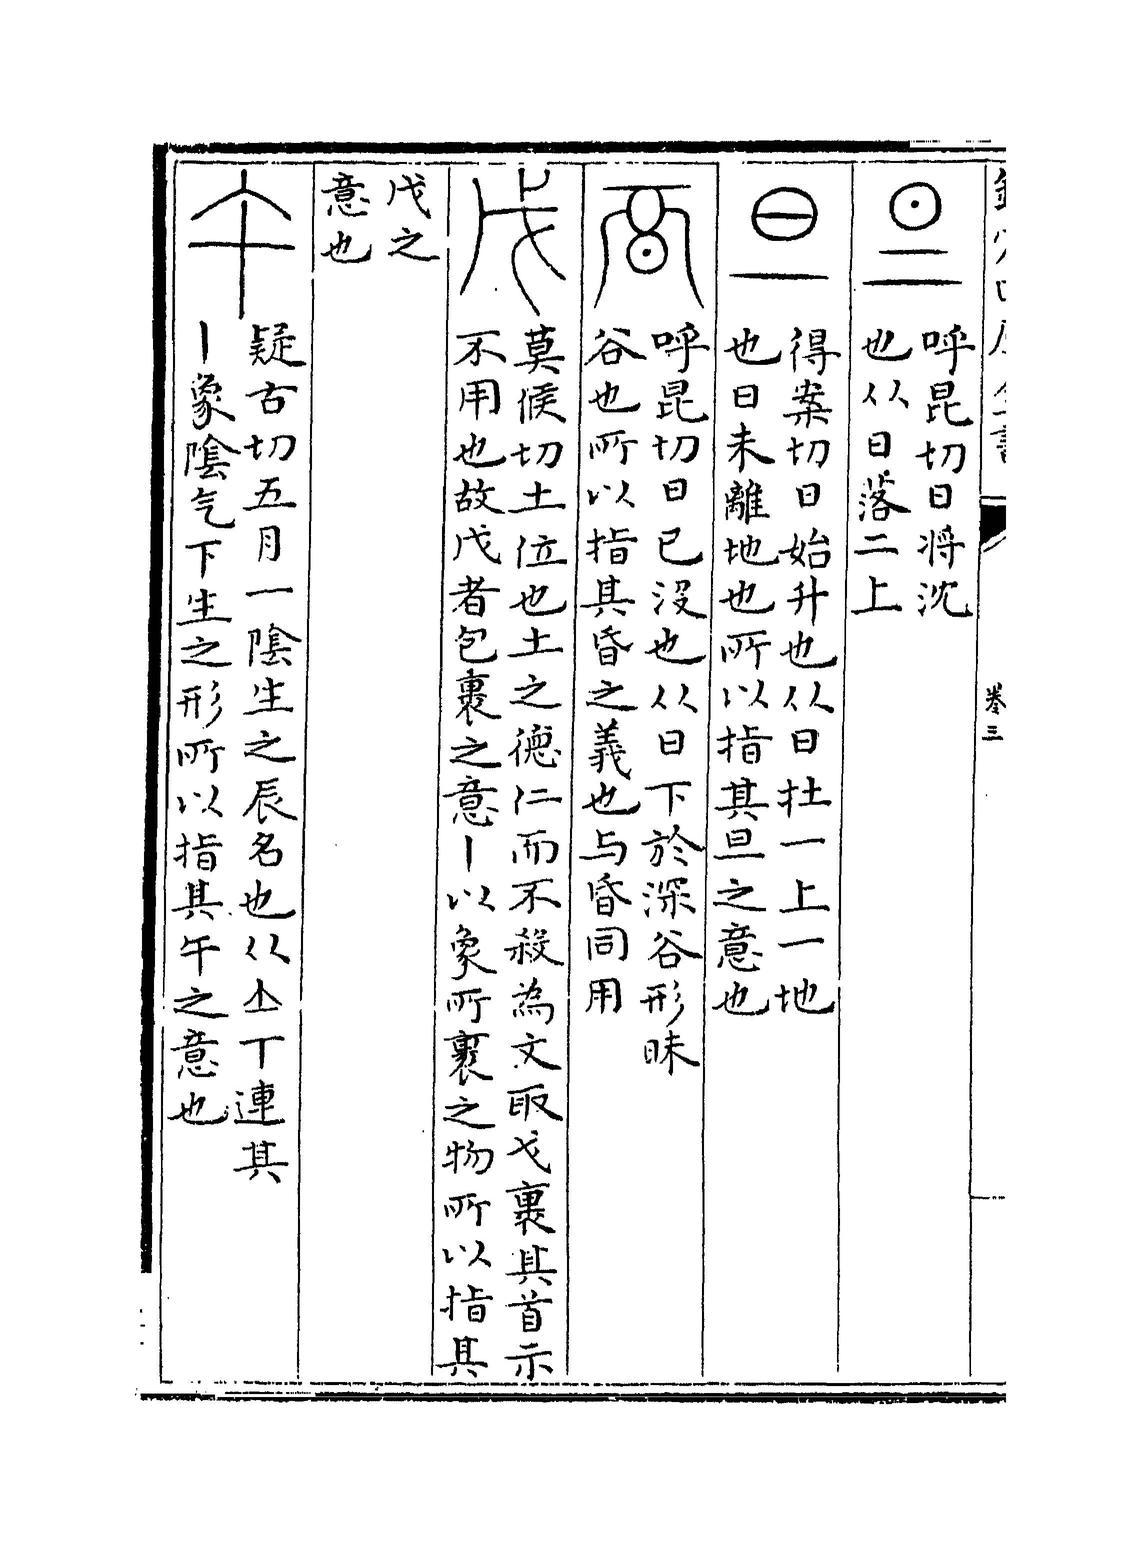 呼昆切日将沈
也从日落二上
得案切日始升也从日扗一上一地
也日未離地也所以指其旦之意也
呼昆切日已没也从日下於深谷形昧
谷也所以指其昏之義也与昏同用
莫候切土位也土之德仁而不殺為文取戈裹其首示
不用也故戊者包裹之意丨以象所裹之物所以指其
戊之
意也
疑古切五月一陰生之辰名也从丄丅連其
丨象陰气下生之形所以指其午之意也
卷三